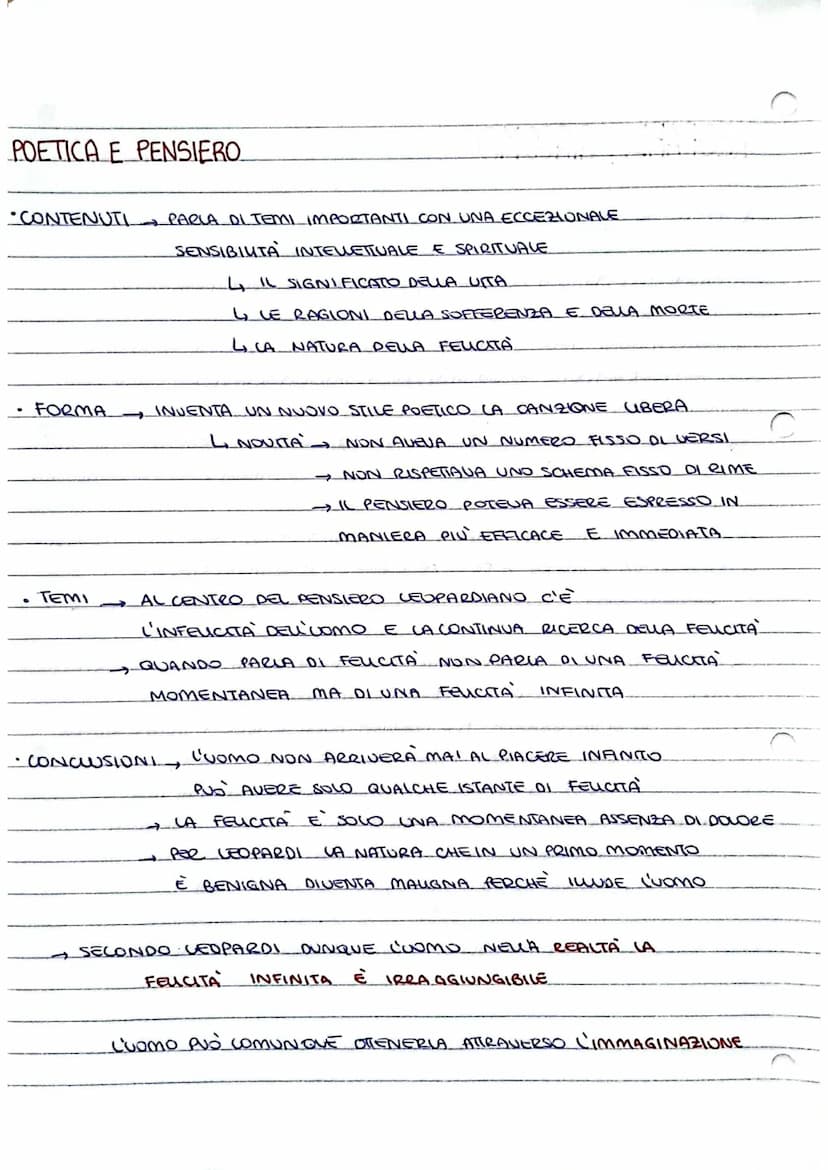 POETICA E PENSIERO
• CONTENUTI → PARLA DI TEMI IMPORTANTI CON UNA ECCEZIONALE
SENSIBILITÀ INTELLETTUALE E SPIRITUALE
↳ IL SIGNIFICATO DELLA VITA
↳ LE RAGIONI DELLA SOFFERENZA E DELLA MORTE
↳ LA NATURA DELLA FELICITÀ
• FORMA → INVENTA UN NUOVO STILE POETICO LA CANZIONE LIBERA
↳ NOVITÀ → NON AVEVA UN NUMERO FISSO DI VERSI
→ NON RISPETTAVA UNO SCHEMA FISSO DI RIME
→ IL PENSIERO POTEVA ESSERE ESPRESSO IN
MANIERA PIÙ EFFICACE E IMMEDIATA
• TEMI → AL CENTRO DEL PENSIERO LEOPARDIANO C'È
L'INFELICITÀ DELL'UOMO E LA CONTINUA RICERCA DELLA FELICITÀ
→ QUANDO PARLA DI FELICITÀ NON PARLA DI UNA FELICITÀ
MOMENTANEA MA DI UNA FELICITÀ INFINITA
• CONCLUSIONI → L'UOMO NON ARRIVERÀ MAI AL PIACERE INFINITO
PUÒ AVERE SOLO QUALCHE ISTANTE DI FELICITÀ
→ LA FELICITÀ È SOLO UNA MOMENTANEA ASSENZA DI DOLORE
→ PER LEOPARDI LA NATURA CHE IN UN PRIMO MOMENTO
È BENIGNA DIVENTA MALIGNA PERCHÈ ILLUDE L'UOMO
→ SECONDO LEOPARDI DUNQUE L'UOMO NELLA REALTÀ LA
FELICITÀ INFINITA È IRRAGGIUNGIBILE
L'UOMO PUÒ COMUNQUE OTTENERLA ATTRAVERSO L'IMMAGINAZIONE